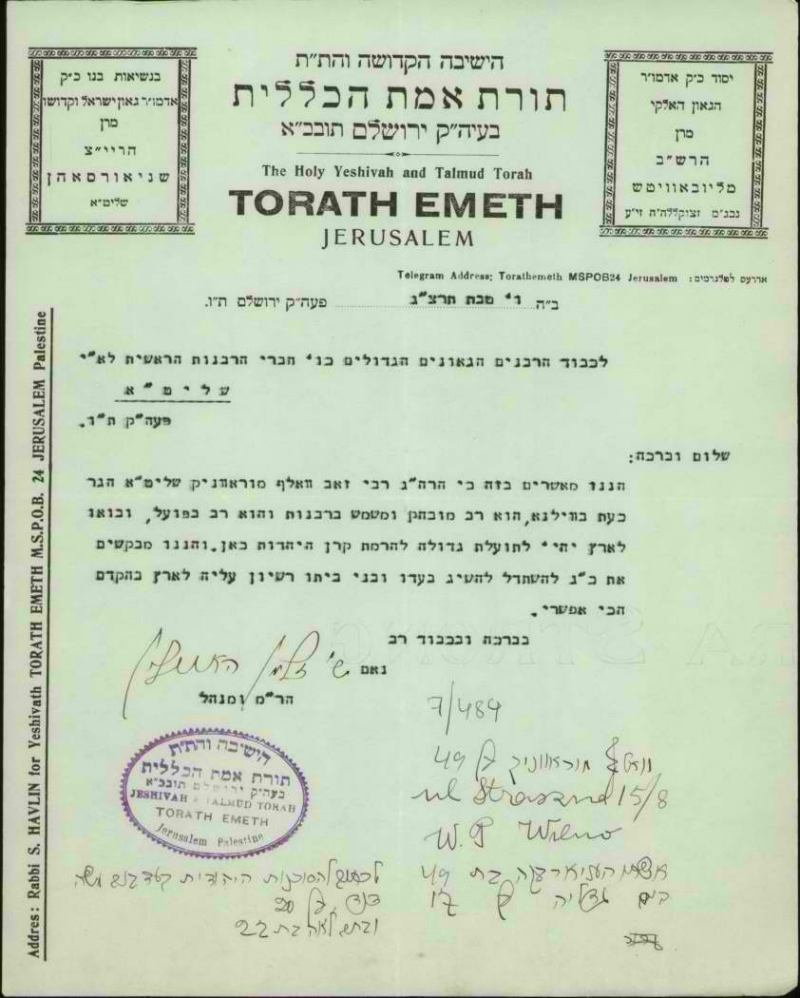 הישיבה הקדושה והת"ת
תורת אמת הכללית
בעיה"ק ירושלם תובב"א
The Holy Yeshivah and Talmud Torah
TORATH EMETH
JERUSALEM
יסוד כ"ק אדמו"ר
הגאון האלקי
מרן
הרש"ב
מליובאוויטש
נבג"מ זצוקללה"ה זי"ע
בנשיאות בנו כ"ק
אדמו"ר גאון ישראל וקדושו
מרן
הריי"צ
שניאורסאהן
שליט"א
Telegram Address: Torathemeth MSPOB24 Jerusalem אדרעס לטלגרמים:
ב"ה ו' טבת תרצ"ג פעה"ק ירושלם ת"ו.
לכבוד הרבנים הגאונים הגדולים כו' חברי הרבנות הראשית לא"י
שליט"א
פעה"ק ת"ו.
שלום וברכה:
הננו מאשרים בזה כי הרה"ג רבי זאב וואלף מוראווניק שליט"א הגר
כעת בווילנא, הוא רב מובהק ומשמש ברבנות והוא רב בפועל, ובואו
לארץ יהי' לתועלת גדולה להרמת קרן היהדות כאן. והננו מבקשים
את כ"ג להשתדל להשיג בעדו ובני ביתו רשיון עליה לארץ בהקדם
הכי אפשרי.
בברכה ובכבוד רב
נאם
הר"מ ומנהל
7/484
וואלף מוראווניק בן 49
ul Straszna 15/8
W. P. Wilno
בת 49
17
בן 20
ובתו לאה בת 22
הישיבה והת"ת
תורת אמת הכללית
בעיה"ק ירושלם תובב"א
JESHIVAH & TALMUD TORAH
TORATH EMETH
Jerusalem Palestine
Addres: Rabbi S. HAVLIN for Yeshivath TORATH EMETH M.S.P.O.B. 24 JERUSALEM Palestine